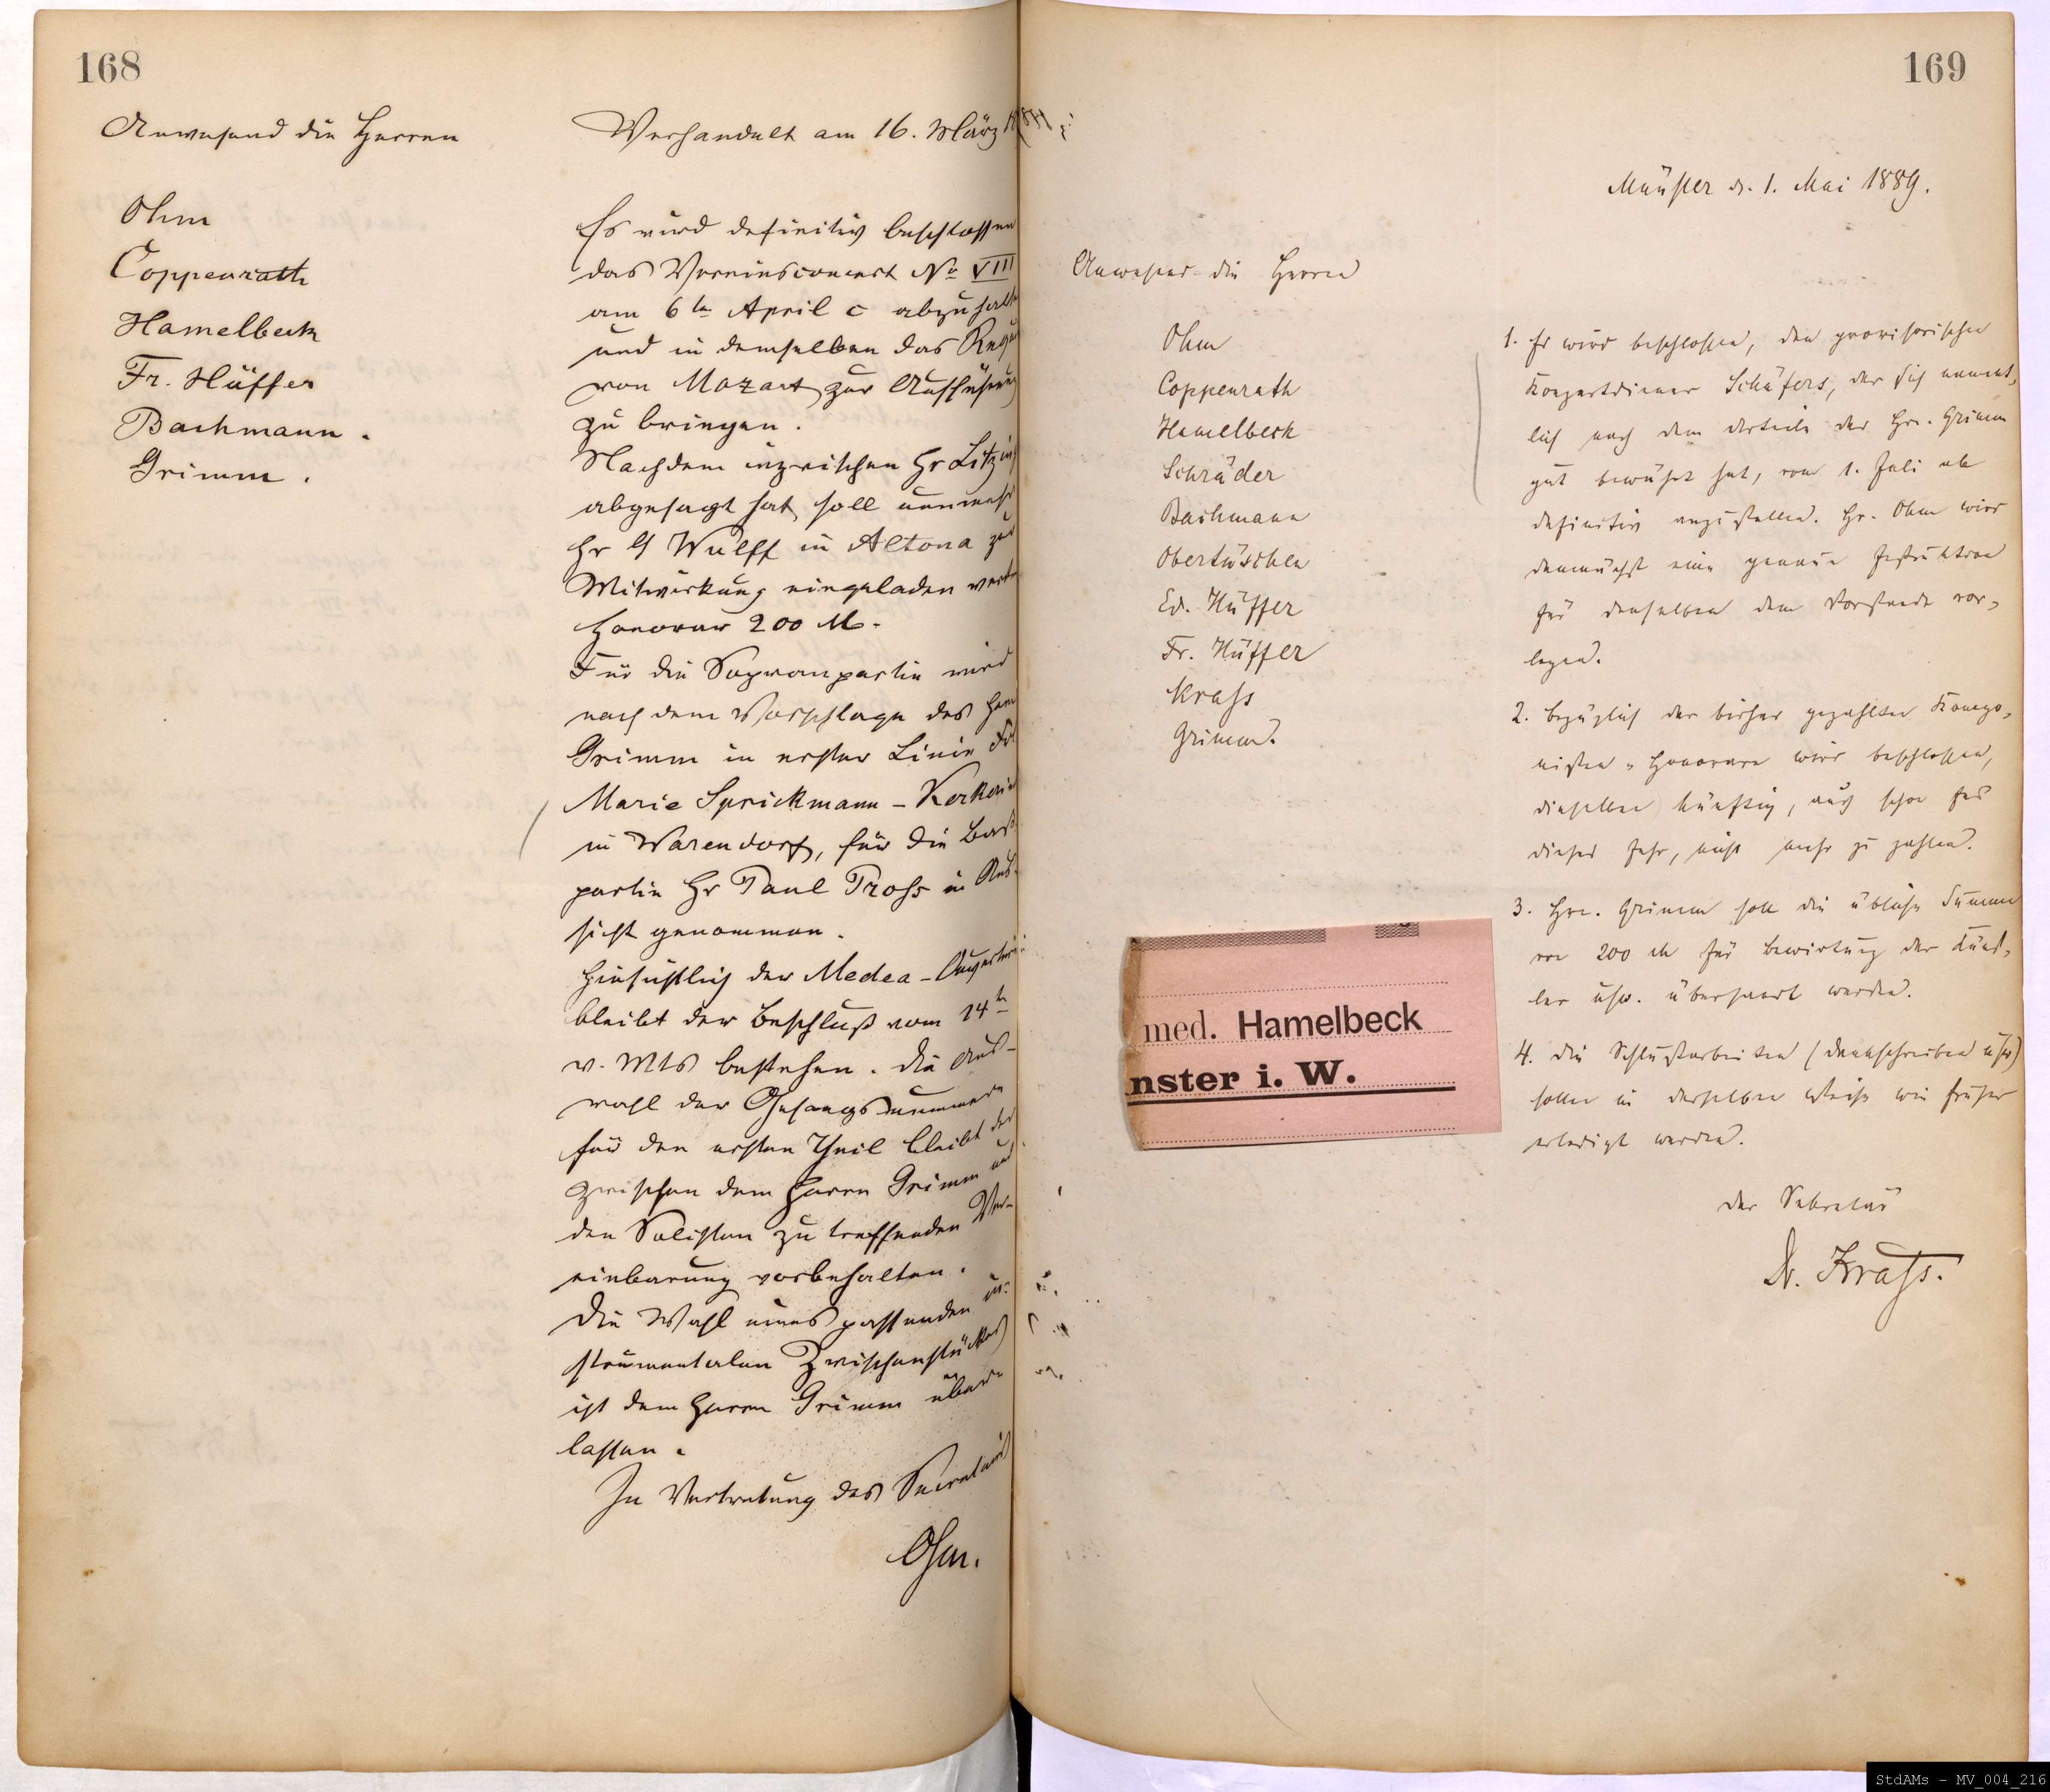 168
Anwesend die Herren
Ohm
Coppenrath
Hamelbeck
Fr. Hüffer
Bachmann.
Grimm.
Verhandelt am 16. März
Es wird definitiv beschlossen
das Vereinsconcert No VIII
am 6ten April c abzuhalten
und in demselben das Requi
von Mozart zur Aufführung
zu bringen.
Nachdem inzwischen Hr Litzin
abgesagt hat, soll nunmehr
Hr Wulff in Altona zur
Mitwirkung eingeladen werd
Honorar 200 M.
Für die Sopranpartie wird
nach dem Vorschlage des Herrn
Grimm in erster Linie Frl
Marie Sprickmann-Kerkerin
in Warendorf, für die Baß
partie Hr Paul Tross in Aus-
sicht genommen.
Hinsichtlich der Medea-Ouverture
bleibt der Beschluß vom 14ten
v. Mts bestehen. Die Aus-
wahl der Gesangsnummern
für den ersten Theil bleibt der
zwischen dem Herrn Grimm und
den Solisten zu treffenden Ver-
einbarung vorbehalten.
Die Wahl eines passenden in-
strumentalen Zwischenstückes
ist dem Herrn Grimm über-
lassen.
In Vertretung des Secretairs
Ohm.
169
Münster d. 1. Mai 1889.
Anwesend die Herren
Ohm
Coppenrath
Hamelbeck
Schräder
Bachmann
Obertüschen
Ed. Hüffer
Fr. Hüffer
Krass
Grimm.
1. Es wird beschlossen, den provisorischen
Konzertdiener Schäfers, der sich nament-
lich nach dem Urteile des Hrn. Grimm
gut bewährt hat, vom 1. Juli ab
definitiv anzustellen. Hr. Ohm wird
demnächst eine genaue Instruktion
für denselben dem Vorstande vor-
legen.
2. Bezüglich der bisher gezahlten Kompo-
nisten-Honorare wird beschlossen,
dieselben künftig, auch schon für
dieses Jahr, nicht mehr zu zahlen.
3. Hrn. Grimm soll die übliche Summe
von 200 M für Bewirtung der Künst-
ler usw. übersandt werden.
4. Die Schlußarbeiten (Dankschreiben usw)
sollen in derselben Weise wie früher
erledigt werden.
Der Sekretär
Dr. Krass.
med. Hamelbeck
nster i. W.
StdAMs - MV_004_216